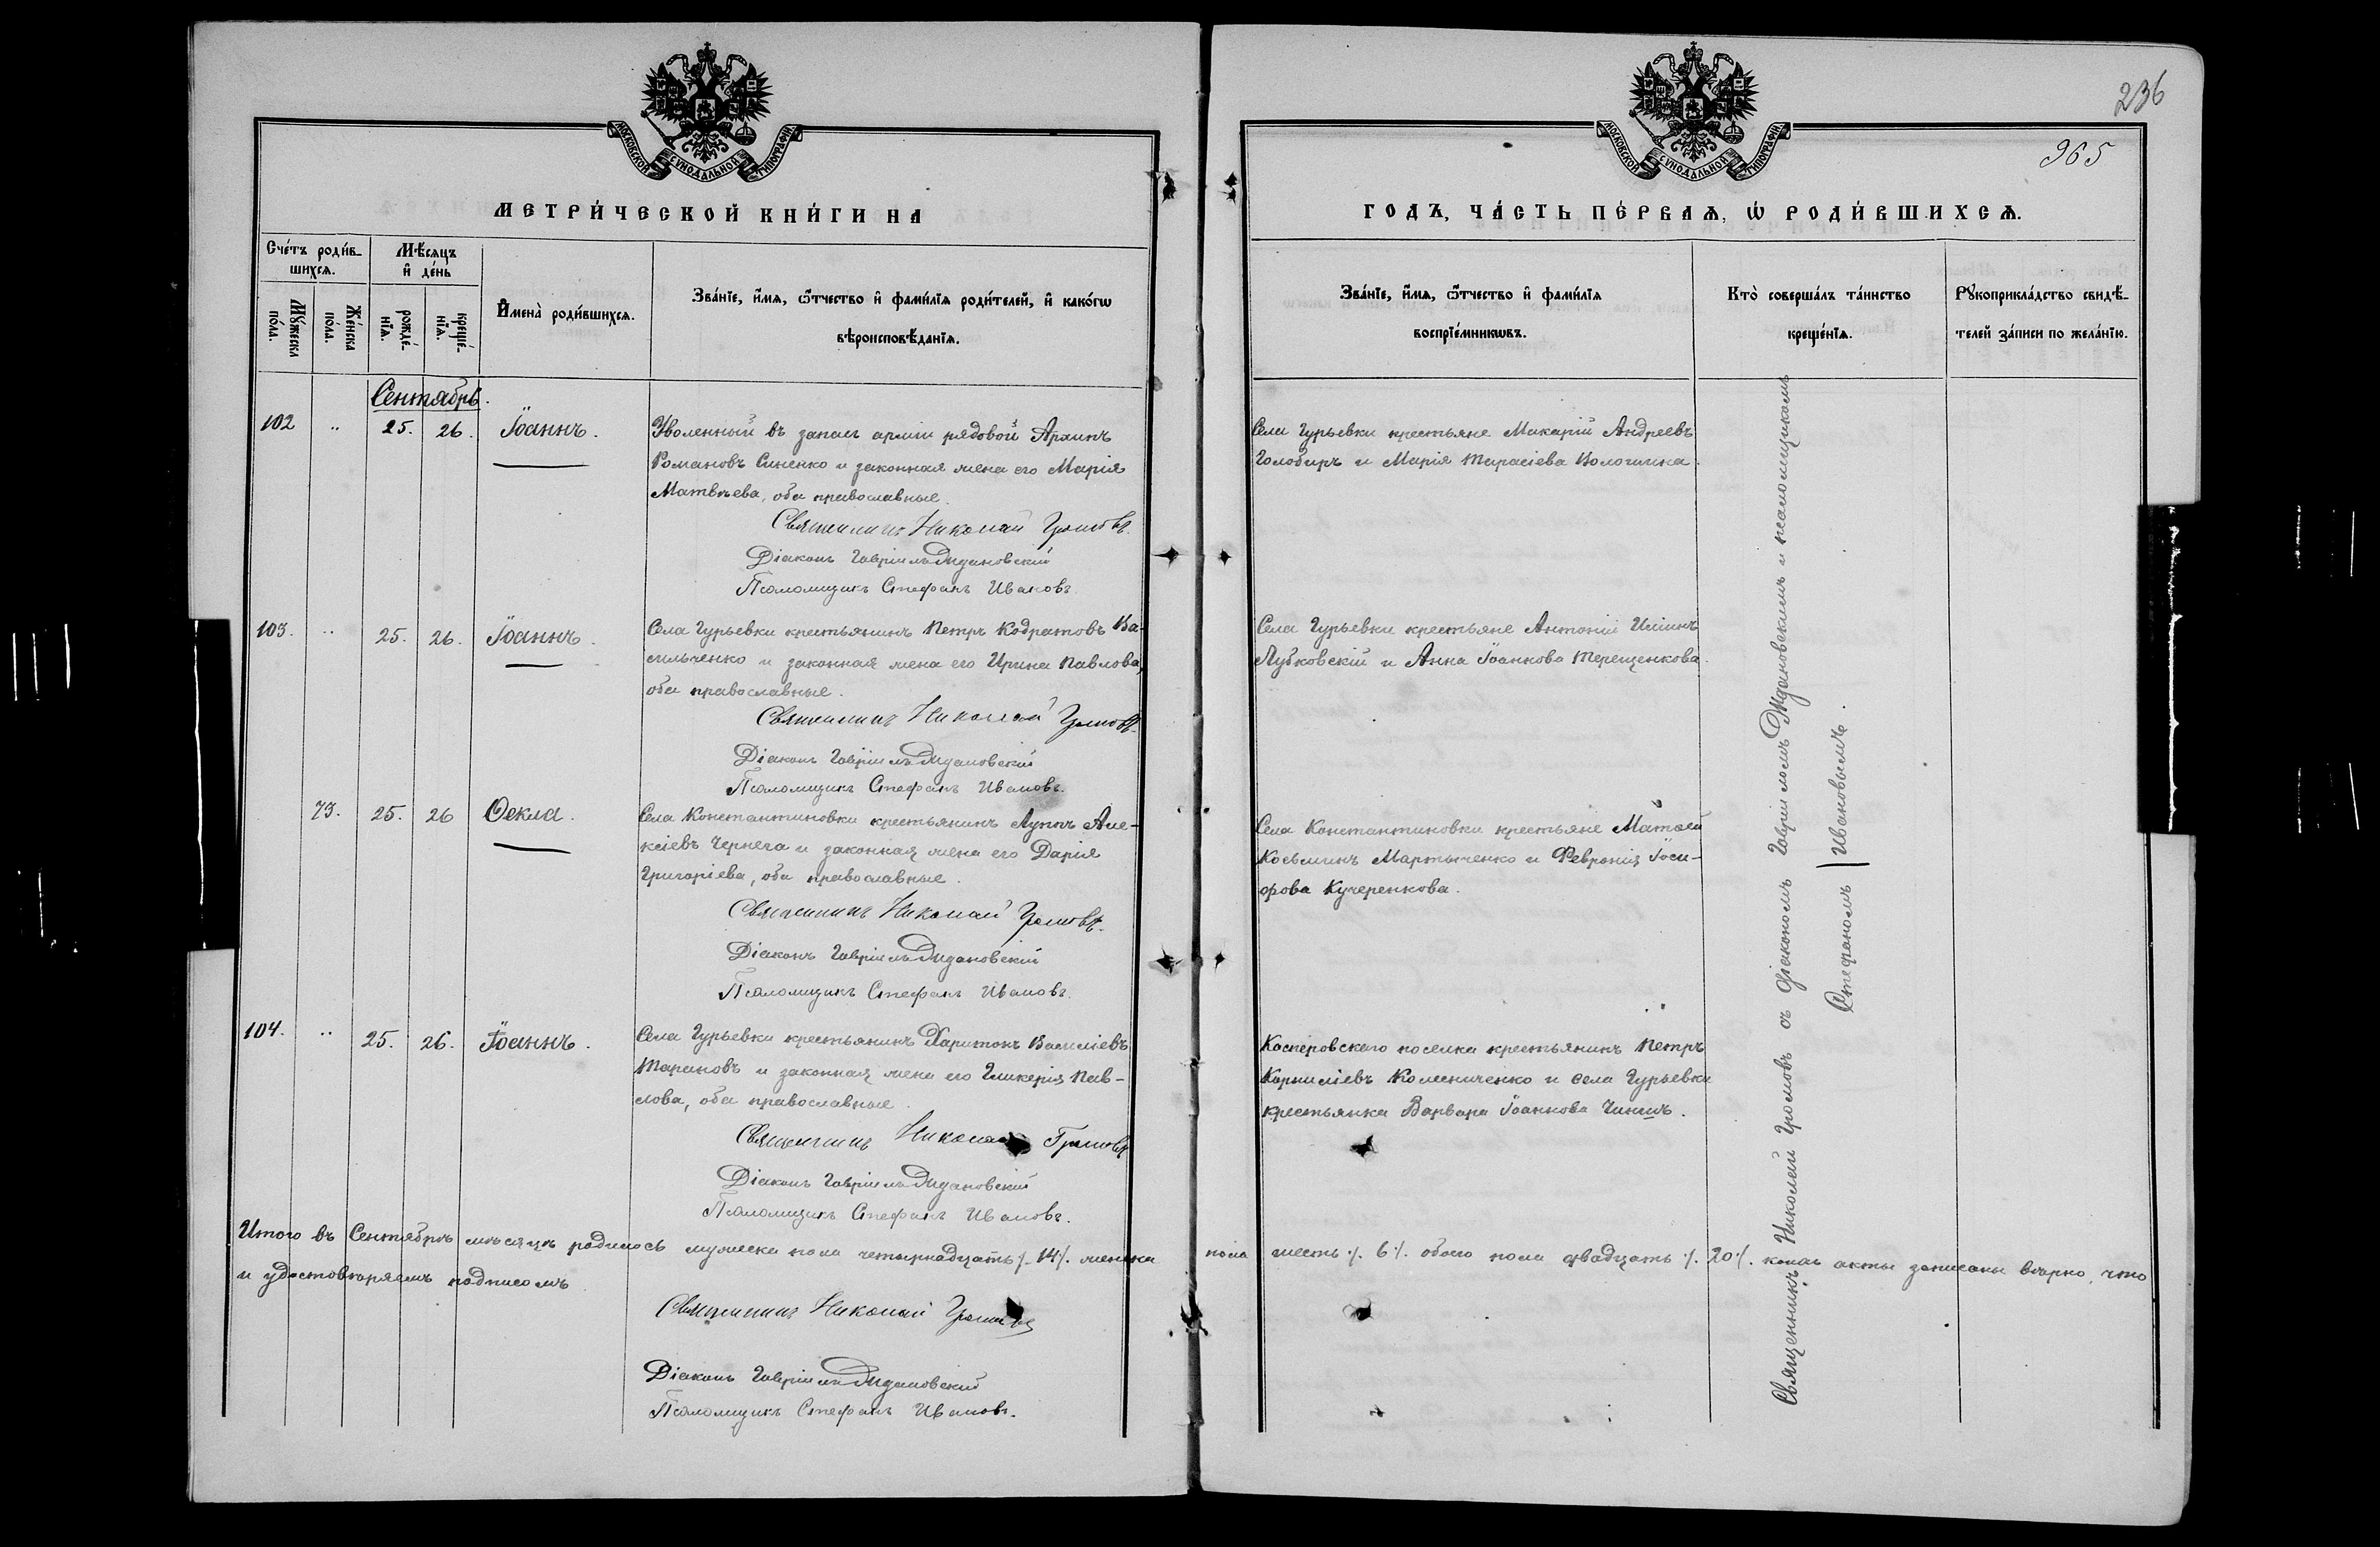 236
965
МОСКОВСКОЙ СѴНОДАЛЬНОЙ ТИПОГРАФІИ.
МОСКОВСКОЙ СѴНОДАЛЬНОЙ ТИПОГРАФІИ.
МЕТРИ́ЧЕСКОЙ КНИ́ГИ НА
ГОДЪ, ЧА́СТЬ ПЕ́РВАѦ, Ѡ РОДИ́ВШИХСѦ.
Сче́тъ роди́в-
шихсѧ.
Мꙋ́жеска
по́ла.
Же́нска
по́ла.
Мѣ́сѧцъ
и҆ де́нь
рожде́-
нїѧ.
креще́-
нїѧ.
И҆мена̀ роди́вшихсѧ.
Зва́нїе, и҆́мѧ, ѻ҆́тчество и҆ фами́лїѧ роди́телей, и҆ како́гѡ
вѣроисповѣ́данїѧ.
Зва́нїе, и҆́мѧ, ѻ҆́тчество и҆ фами́лїѧ
воспрїе́мникѡвъ.
Кто̀ соверша́лъ та́инство
креще́нїѧ.
Рꙋкоприкла́дство свидѣ́-
телей за́писи по жела́нїю.
Сентябрь.
102 " 25. 26. Іоаннъ.
Уволенный въ запасъ арміи рядовой Архипъ
Романовъ Синенко и законная жена его Марія
Матвѣева, оба православные.
Священникъ Николай Громовъ.
Діаконъ Гавріилъ Ждановскій
Псаломщикъ Стефанъ Ивановъ.
Села Гурьевки крестьяне Макарій Андреевъ
Голобиръ и Марія Тарасіева
103. " 25. 26. Іоаннъ.
Села Гурьевки крестьянинъ Петръ Кодратовъ Ва-
сильченко и законная жена его Ирина Павлова,
оба православные.
Священникъ Николай Громовъ.
Діаконъ Гавріилъ Ждановскій
Псаломщикъ Стефанъ Ивановъ.
Села Гурьевки крестьяне Антоній
Лубковскій и Анна Іоаннова Терещенкова.
73. 25. 26 Ѳекла.
Села Константиновки крестьянинъ Луппъ Але-
ксіевъ Чернега и законная жена его Дарія
Григоріева, оба православные.
Священникъ Николай Громовъ.
Діаконъ Гавріилъ Ждановскій
Псаломщикъ Стефанъ Ивановъ.
Села Константиновки крестьяне Матѳей
Косьминъ Мартыненко и Февронія Іоси-
фова Кучеренкова.
104. " 25. 26. Іоаннъ.
Села Гурьевки крестьянинъ Харитонъ Василіевъ
Тарановъ и законная жена его Гликерія Пав-
лова, оба православные.
Священникъ Николай Громовъ
Діаконъ Гавріилъ Ждановскій
Псаломщикъ Стефанъ Ивановъ.
Касперовскаго поселка крестьянинъ Петръ
Корниліевъ Колесниченко и села Гурьевки
крестьянка Варвара Іоаннова
Священникъ Николай Громовъ съ діакономъ Гавріиломъ Ждановскимъ и псаломщикомъ
Стефаномъ Ивановымъ.
Итого въ Сентябрѣ мѣсяцѣ родилось мужеска пола четырнадцать /. 14 /. женска пола шесть /. 6 /. обоего пола двадцать /. 20 /. коихъ акты записаны вѣрно, что
и удостовѣряемъ подписомъ
Священникъ Николай Громовъ
Діаконъ Гавріилъ Ждановскій
Псаломщикъ Стефанъ Ивановъ.